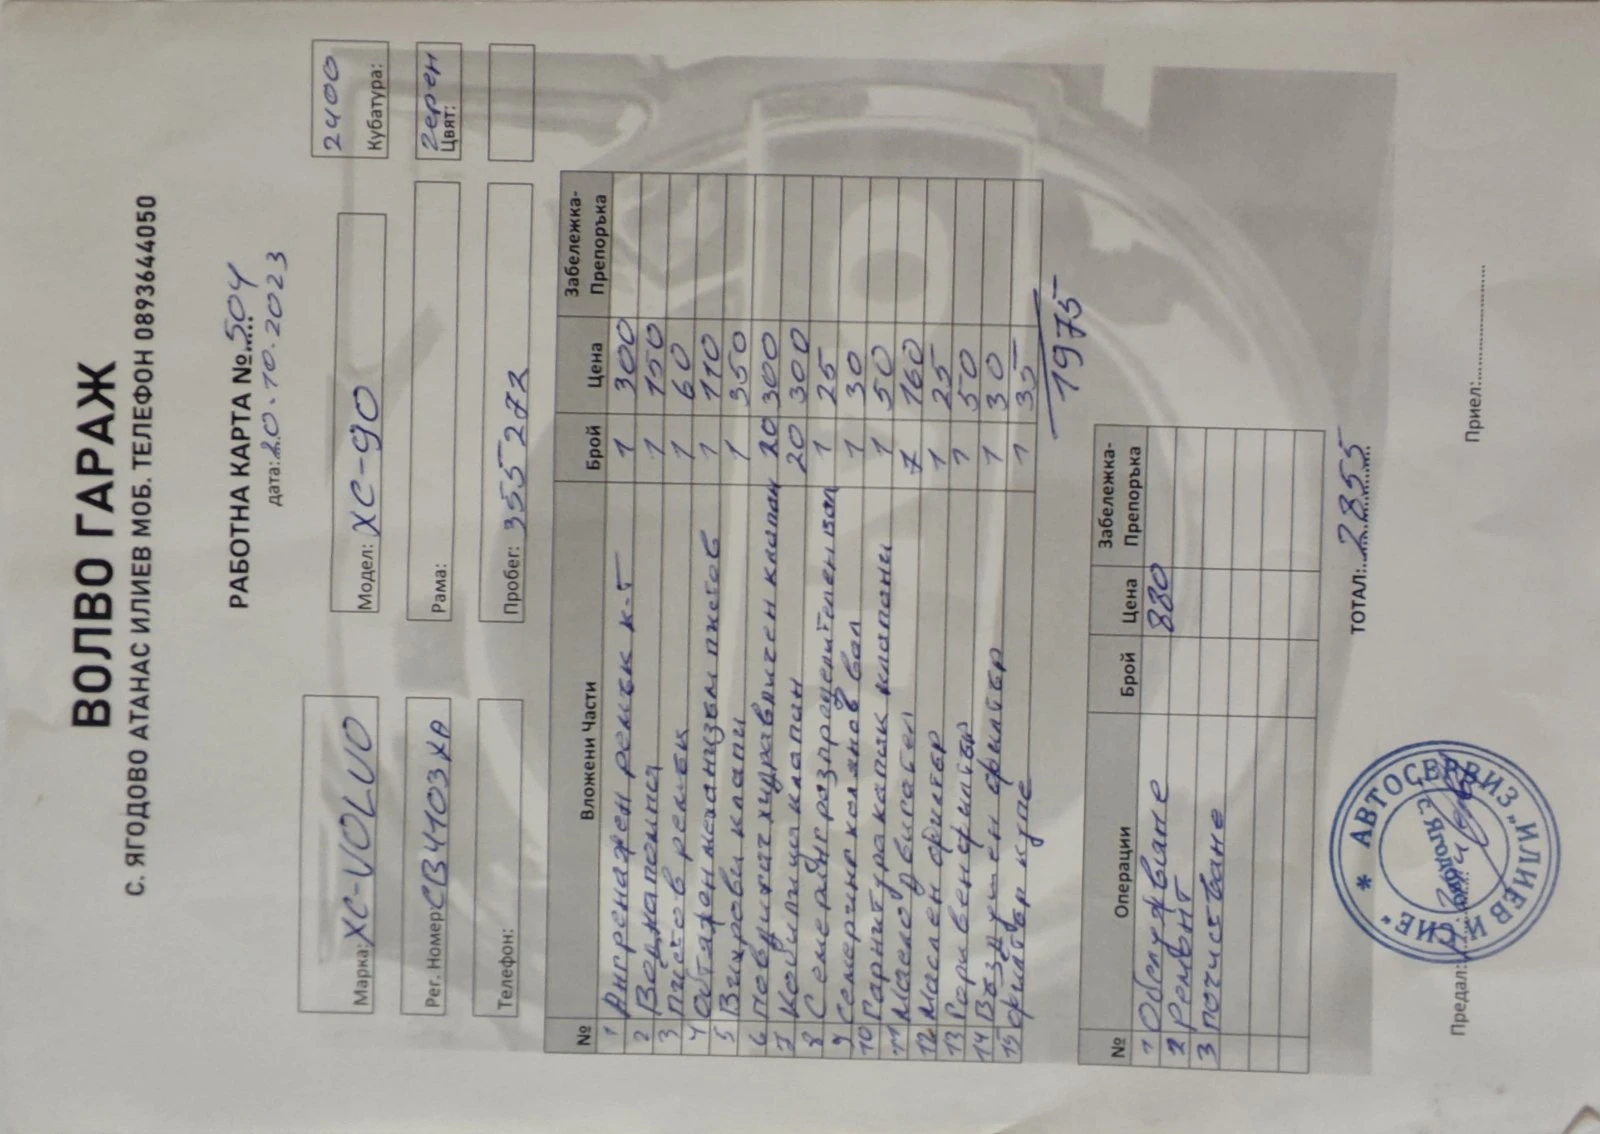 ВОЛВО ГАРАЖ
С. ЯГОДОВО АТАНАС ИЛИЕВ МОБ. ТЕЛЕФОН 0893644050
РАБОТНА КАРТА №.504
дата: 20.10.2023
Марка: XC-VOLVO Модел: XC-90 2400 Кубатура:
Рег. Номер CB4103XA Рама: Зелен Цвят:
Телефон: Пробег: 355 272
№ Вложени Части Брой Цена Забележка-Препоръка
1 Ангренажен ремък к-т 1 300
2 Воднапомпа 1 150
3 Пистов ремък 1 60
4 Обтяжен механизъм пистов 1 110
5 Вихрови клапи 1 350
6 повдигач хидравличен клапан 20 300
7 Кобилица клапан 20 300
8 Семеринг разпределителен вал 1 25
9 Семеринг колянов вал 1 30
10 Гарнитура капак клапани 1 50
11 Масло двигател 7 160
12 Маслен филтър 1 25
13 Горивен филтър 1 50
14 Въздушен филтър 1 30
15 филтър купе 1 35
1975
№ Операции Брой Цена Забележка-Препоръка
1 Обслужване 880
2 Ремонт
3 почистване
ТОТАЛ: 2855
Предал: Приел:
* АВТОСЕРВИЗ * ИЛИЕВ И СИЕ"